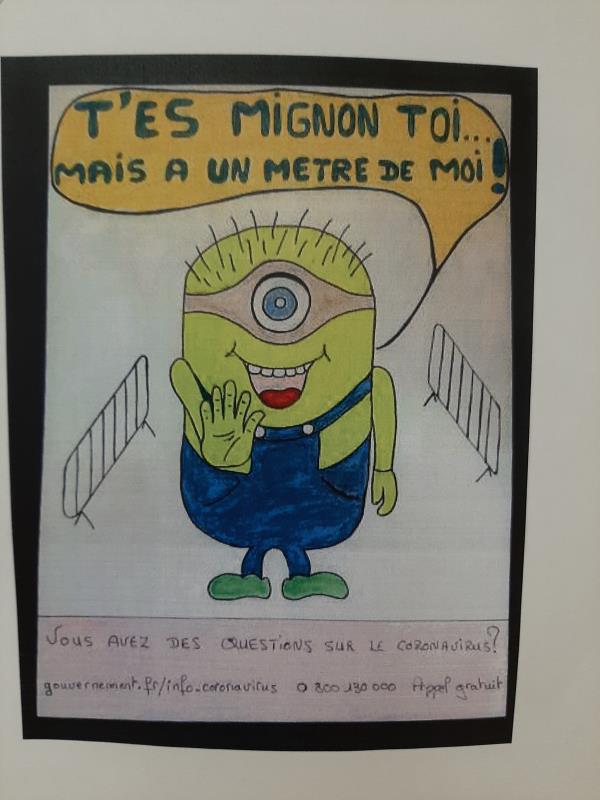 T'ES MiGNON TOi...
MAiS A UN METRE DE MOi !
VOUS AVEZ DES QUESTIONS SUR LE CORONAVIRUS?
gouvernement.fr/info-coronavirus 0 800 130 000 Appel gratuit